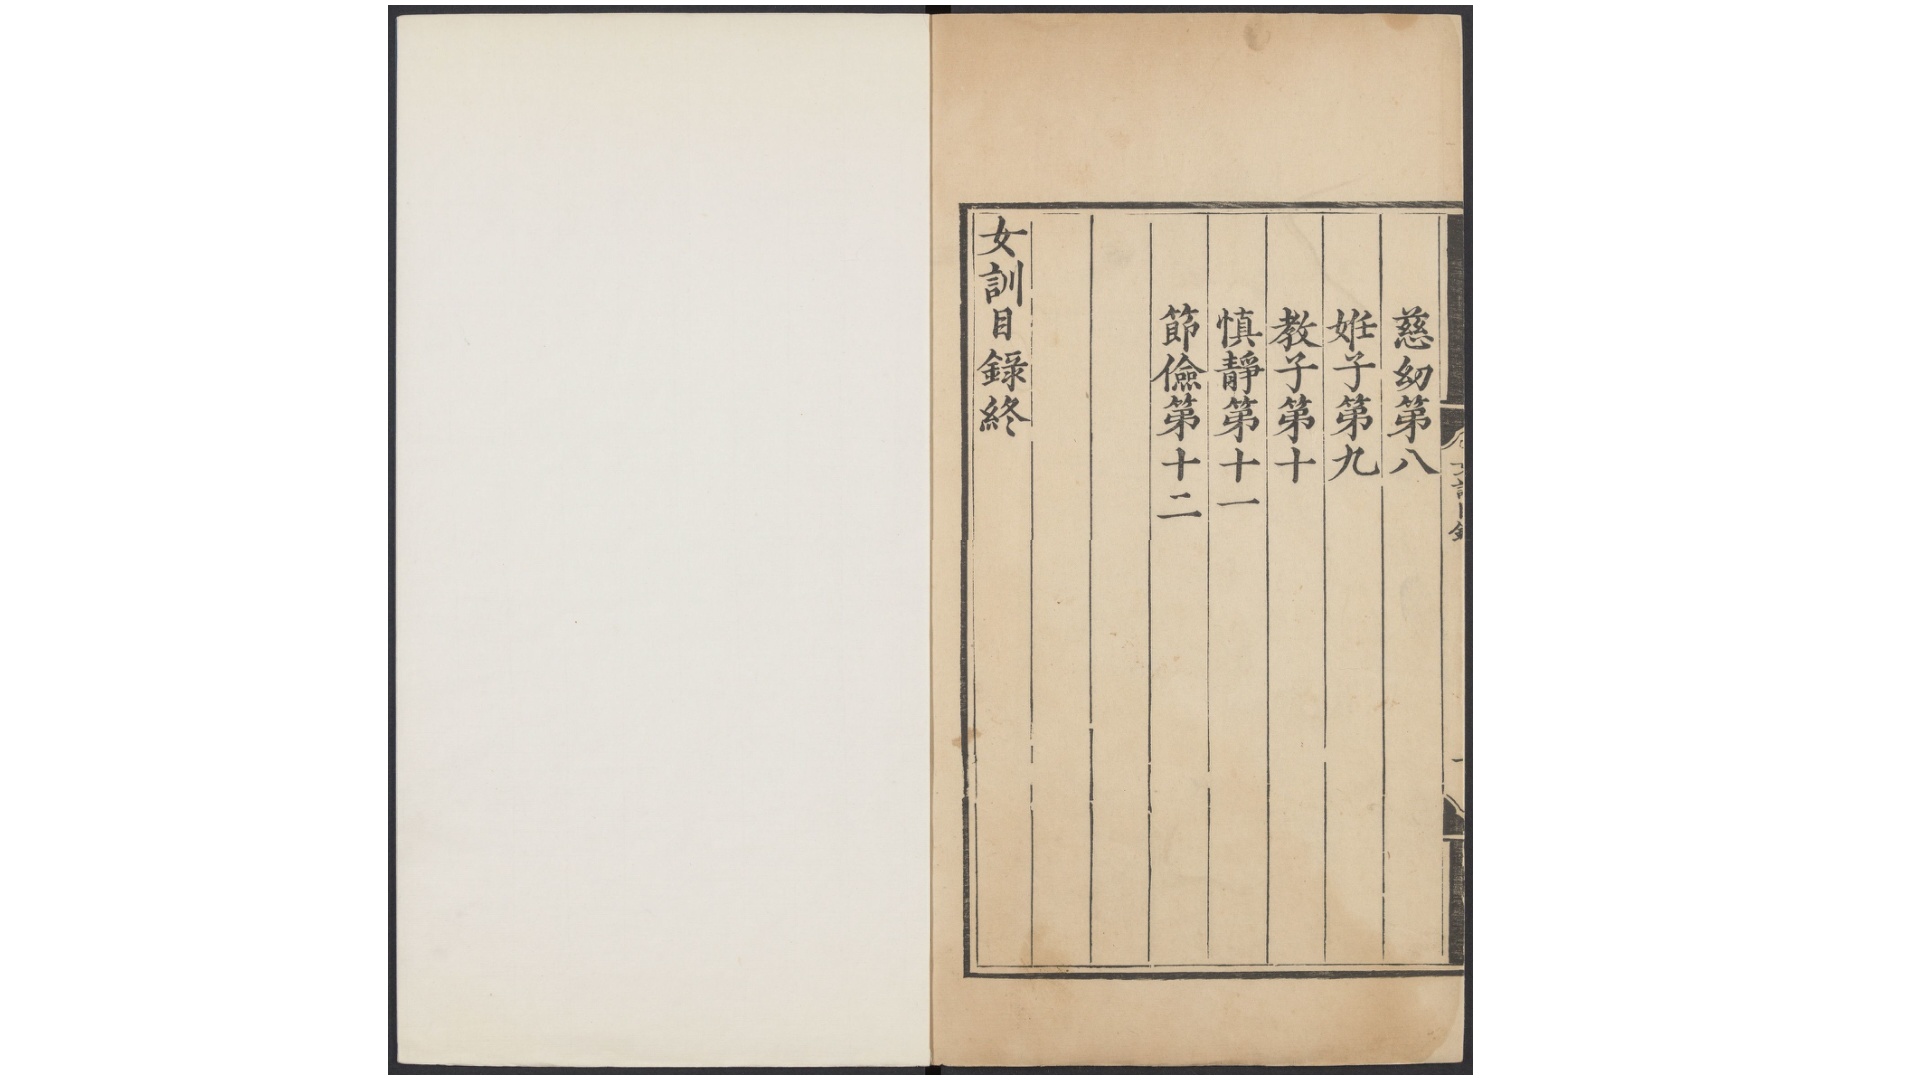 慈幼第八
姙子第九
教子第十
慎靜第十一
節儉第十二
女訓目錄終